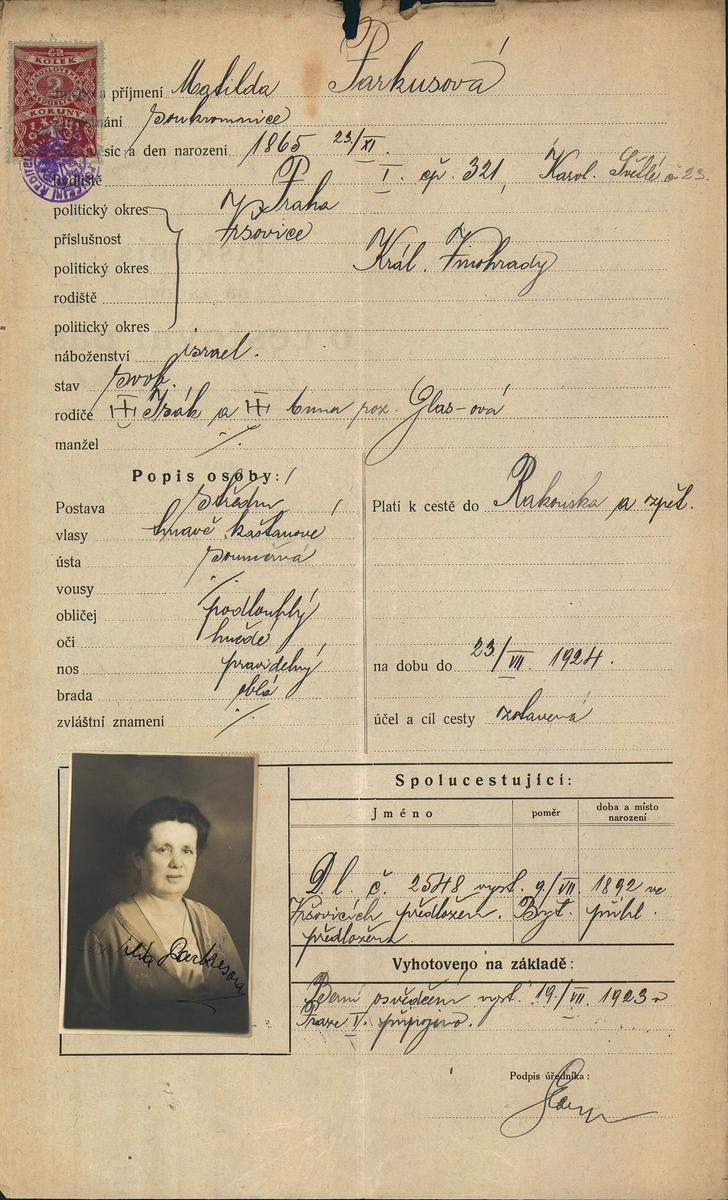 KOLEK
2
KORUNY
a příjmení Matilda Parkusová
soukromnice
měsíc a den narození 1865 23/XI
bydliště Praha I. čp. 321, Karol. Světlé č 23.
politický okres
příslušnost Vršovice
politický okres Král. Vinohrady
rodiště
politický okres
náboženství israel.
stav svob.
rodiče Isák a Anna roz. Glas-ová
manžel ./.
Popis osoby:
Postava střední
vlasy tmavě kaštanové
ústa souměrná
vousy ./.
obličej podlouhlý
oči hnědé
nos pravidelný
brada oblá
zvláštní znamení ./.
Platí k cestě do Rakouska a zpět.
na dobu do 23/VII 1924.
účel a cíl cesty zotavená
Spolucestující:
Jméno poměr doba a místo narození
D. l. č. 2548 vyst. 9./VII. 1892 ve
Vršovicích předložen. Byt. přihl.
předložena.
Vyhotoveno na základě:
Berní osvědčení vyst. 19./VII. 1923 v
Praze připojeno.
Parkusova
Podpis úředníka: